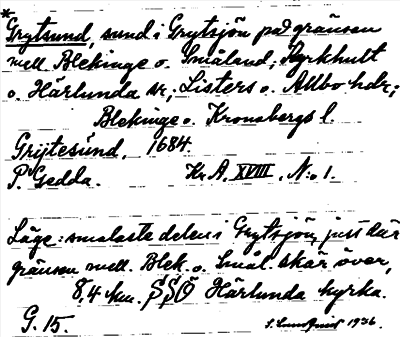 * Grytsund, sund i Grytsjön på gränsen
mell. Blekinge o. Småland; Kyrkhult
o. Härlunda sr.; Listers o. Allbo hdr.;
Blekinge o. Kronobergs l.
Grijtesund. 1684.
P. Gedda. Kr. A. XVIII, N:o 1.
Läge: smalaste delen i Grytsjön, just där
gränsen mell. Blek. o. Smål. skär över,
8,4 km. SSÖ Härlunda kyrka.
G. 15. 1936.